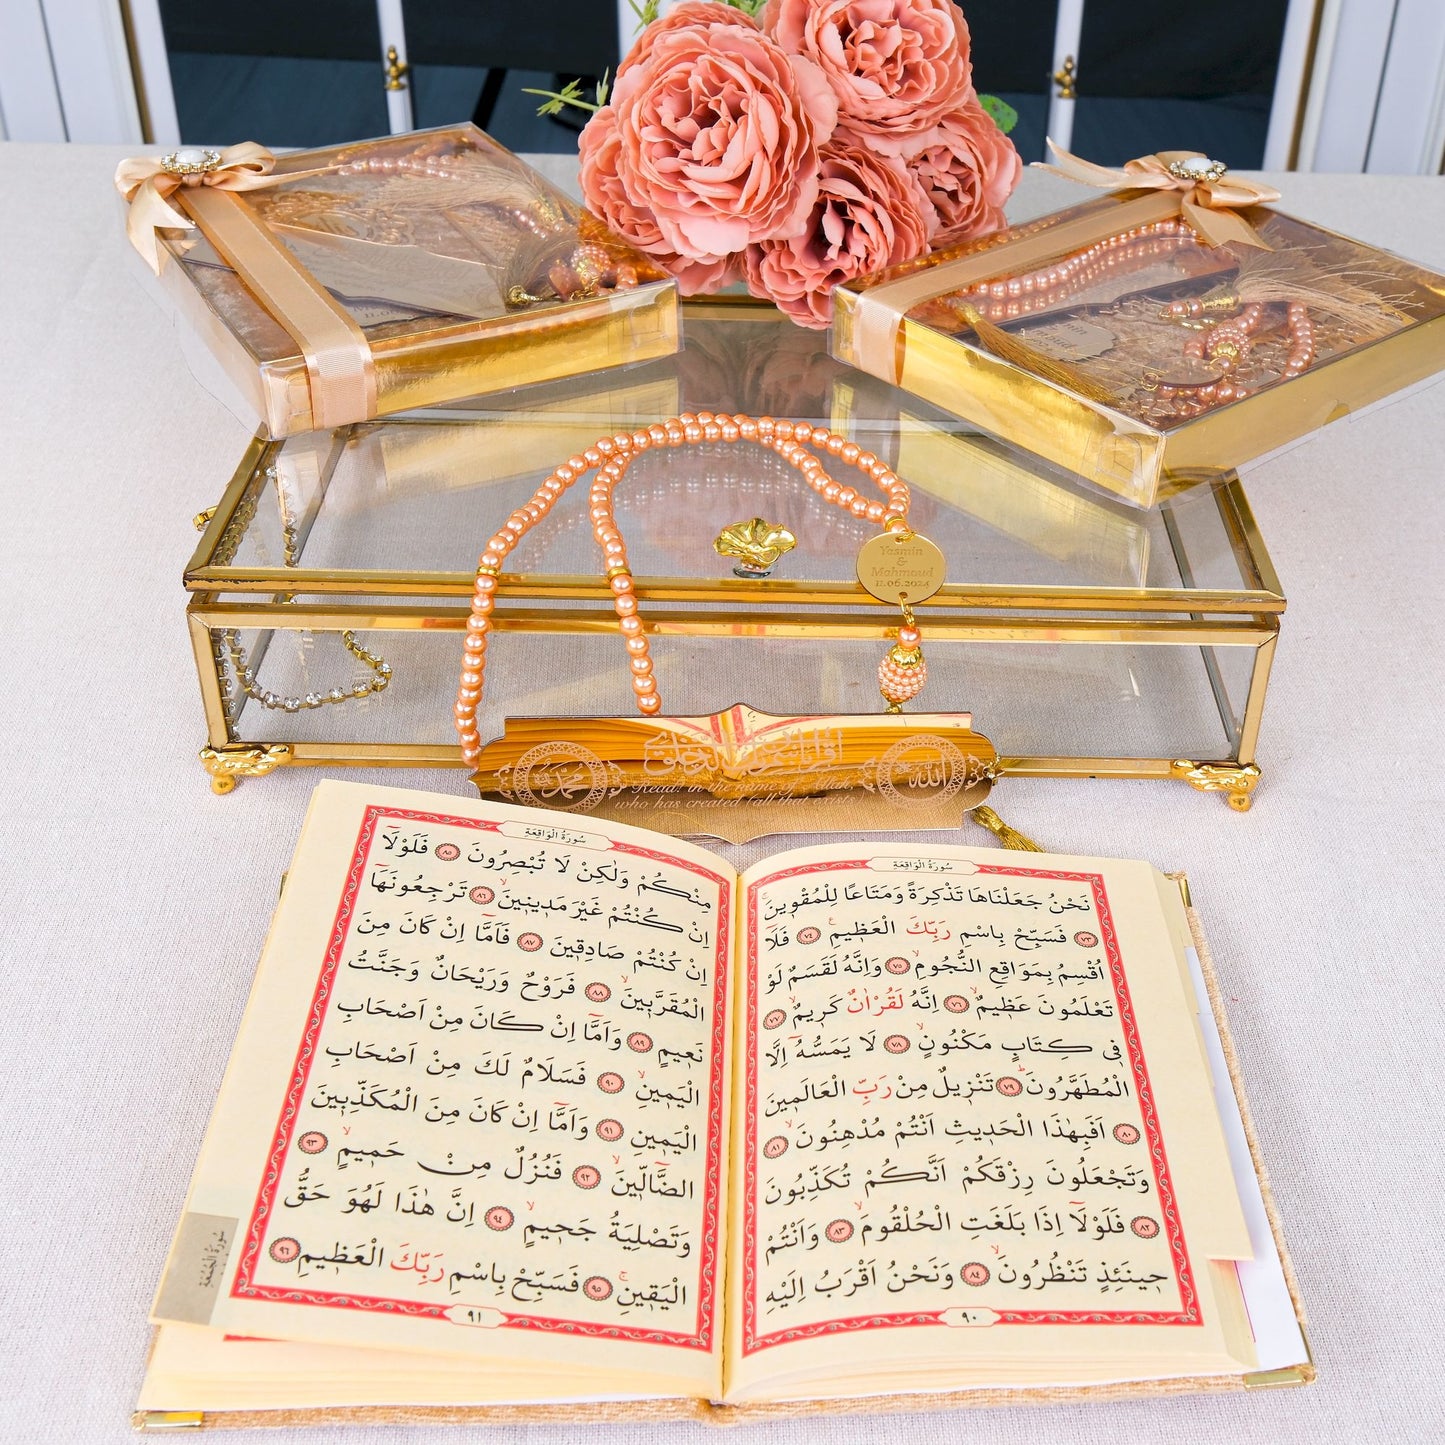 Yasmin
&
Mahmoud
11.06.2024
محمد
الله
Read! in the name of Allah,
who has created (all that exists)
سُورَةُ الْوَاقِعَةِ
نَحْنُ جَعَلْنَاهَا تَذْكِرَةً وَمَتَاعًا لِلْمُقْوِينَۚ
﴿٧٣﴾ فَسَبِّحْ بِاسْمِ رَبِّكَ الْعَظِيمِ ﴿٧٤﴾ فَلَا
اُقْسِمُ بِمَوَاقِعِ النُّجُومِۙ ﴿٧٥﴾ وَاِنَّهُ لَقَسَمٌ لَوْ
تَعْلَمُونَ عَظِيمٌۙ ﴿٧٦﴾ اِنَّهُ لَقُرْاٰنٌ كَرِيمٌۙ ﴿٧٧﴾
فِي كِتَابٍ مَكْنُونٍۙ ﴿٧٨﴾ لَا يَمَسُّهُٓ اِلَّا
الْمُطَهَّرُونَۜ ﴿٧٩﴾ تَنْزِيلٌ مِنْ رَبِّ الْعَالَمِينَ
﴿٨٠﴾ اَفَبِهٰذَا الْحَدِيثِ اَنْتُمْ مُدْهِنُونَۙ ﴿٨١﴾
وَتَجْعَلُونَ رِزْقَكُمْ اَنَّكُمْ تُكَذِّبُونَ
﴿٨٢﴾ فَلَوْلَٓا اِذَا بَلَغَتِ الْحُلْقُومَۙ ﴿٨٣﴾ وَاَنْتُمْ
حِينَئِذٍ تَنْظُرُونَۙ ﴿٨٤﴾ وَنَحْنُ اَقْرَبُ اِلَيْهِ
٩٠
سُورَةُ الْوَاقِعَةِ
مِنْكُمْ وَلٰكِنْ لَا تُبْصِرُونَ ﴿٨٥﴾ فَلَوْلَٓا
اِنْ كُنْتُمْ غَيْرَ مَدِينِينَۙ ﴿٨٦﴾ تَرْجِعُونَهَٓا
اِنْ كُنْتُمْ صَادِقِينَ ﴿٨٧﴾ فَاَمَّٓا اِنْ كَانَ مِنَ
الْمُقَرَّبِينَۙ ﴿٨٨﴾ فَرَوْحٌ وَرَيْحَانٌ وَجَنَّتُ
نَعِيمٍ ﴿٨٩﴾ وَاَمَّٓا اِنْ كَانَ مِنْ اَصْحَابِ
الْيَمِينِۙ ﴿٩٠﴾ فَسَلَامٌ لَكَ مِنْ اَصْحَابِ
الْيَمِينِ ﴿٩١﴾ وَاَمَّٓا اِنْ كَانَ مِنَ الْمُكَذِّبِينَ
الضَّٓالِّينَۙ ﴿٩٢﴾ فَنُزُلٌ مِنْ حَمِيمٍۙ ﴿٩٣﴾
وَتَصْلِيَةُ جَحِيمٍۙ ﴿٩٤﴾ اِنَّ هٰذَا لَهُوَ حَقُّ
الْيَقِينِۚ ﴿٩٥﴾ فَسَبِّحْ بِاسْمِ رَبِّكَ الْعَظِيمِ ﴿٩٦﴾
٩١
سُورَةُ الْجُمُعَةِ